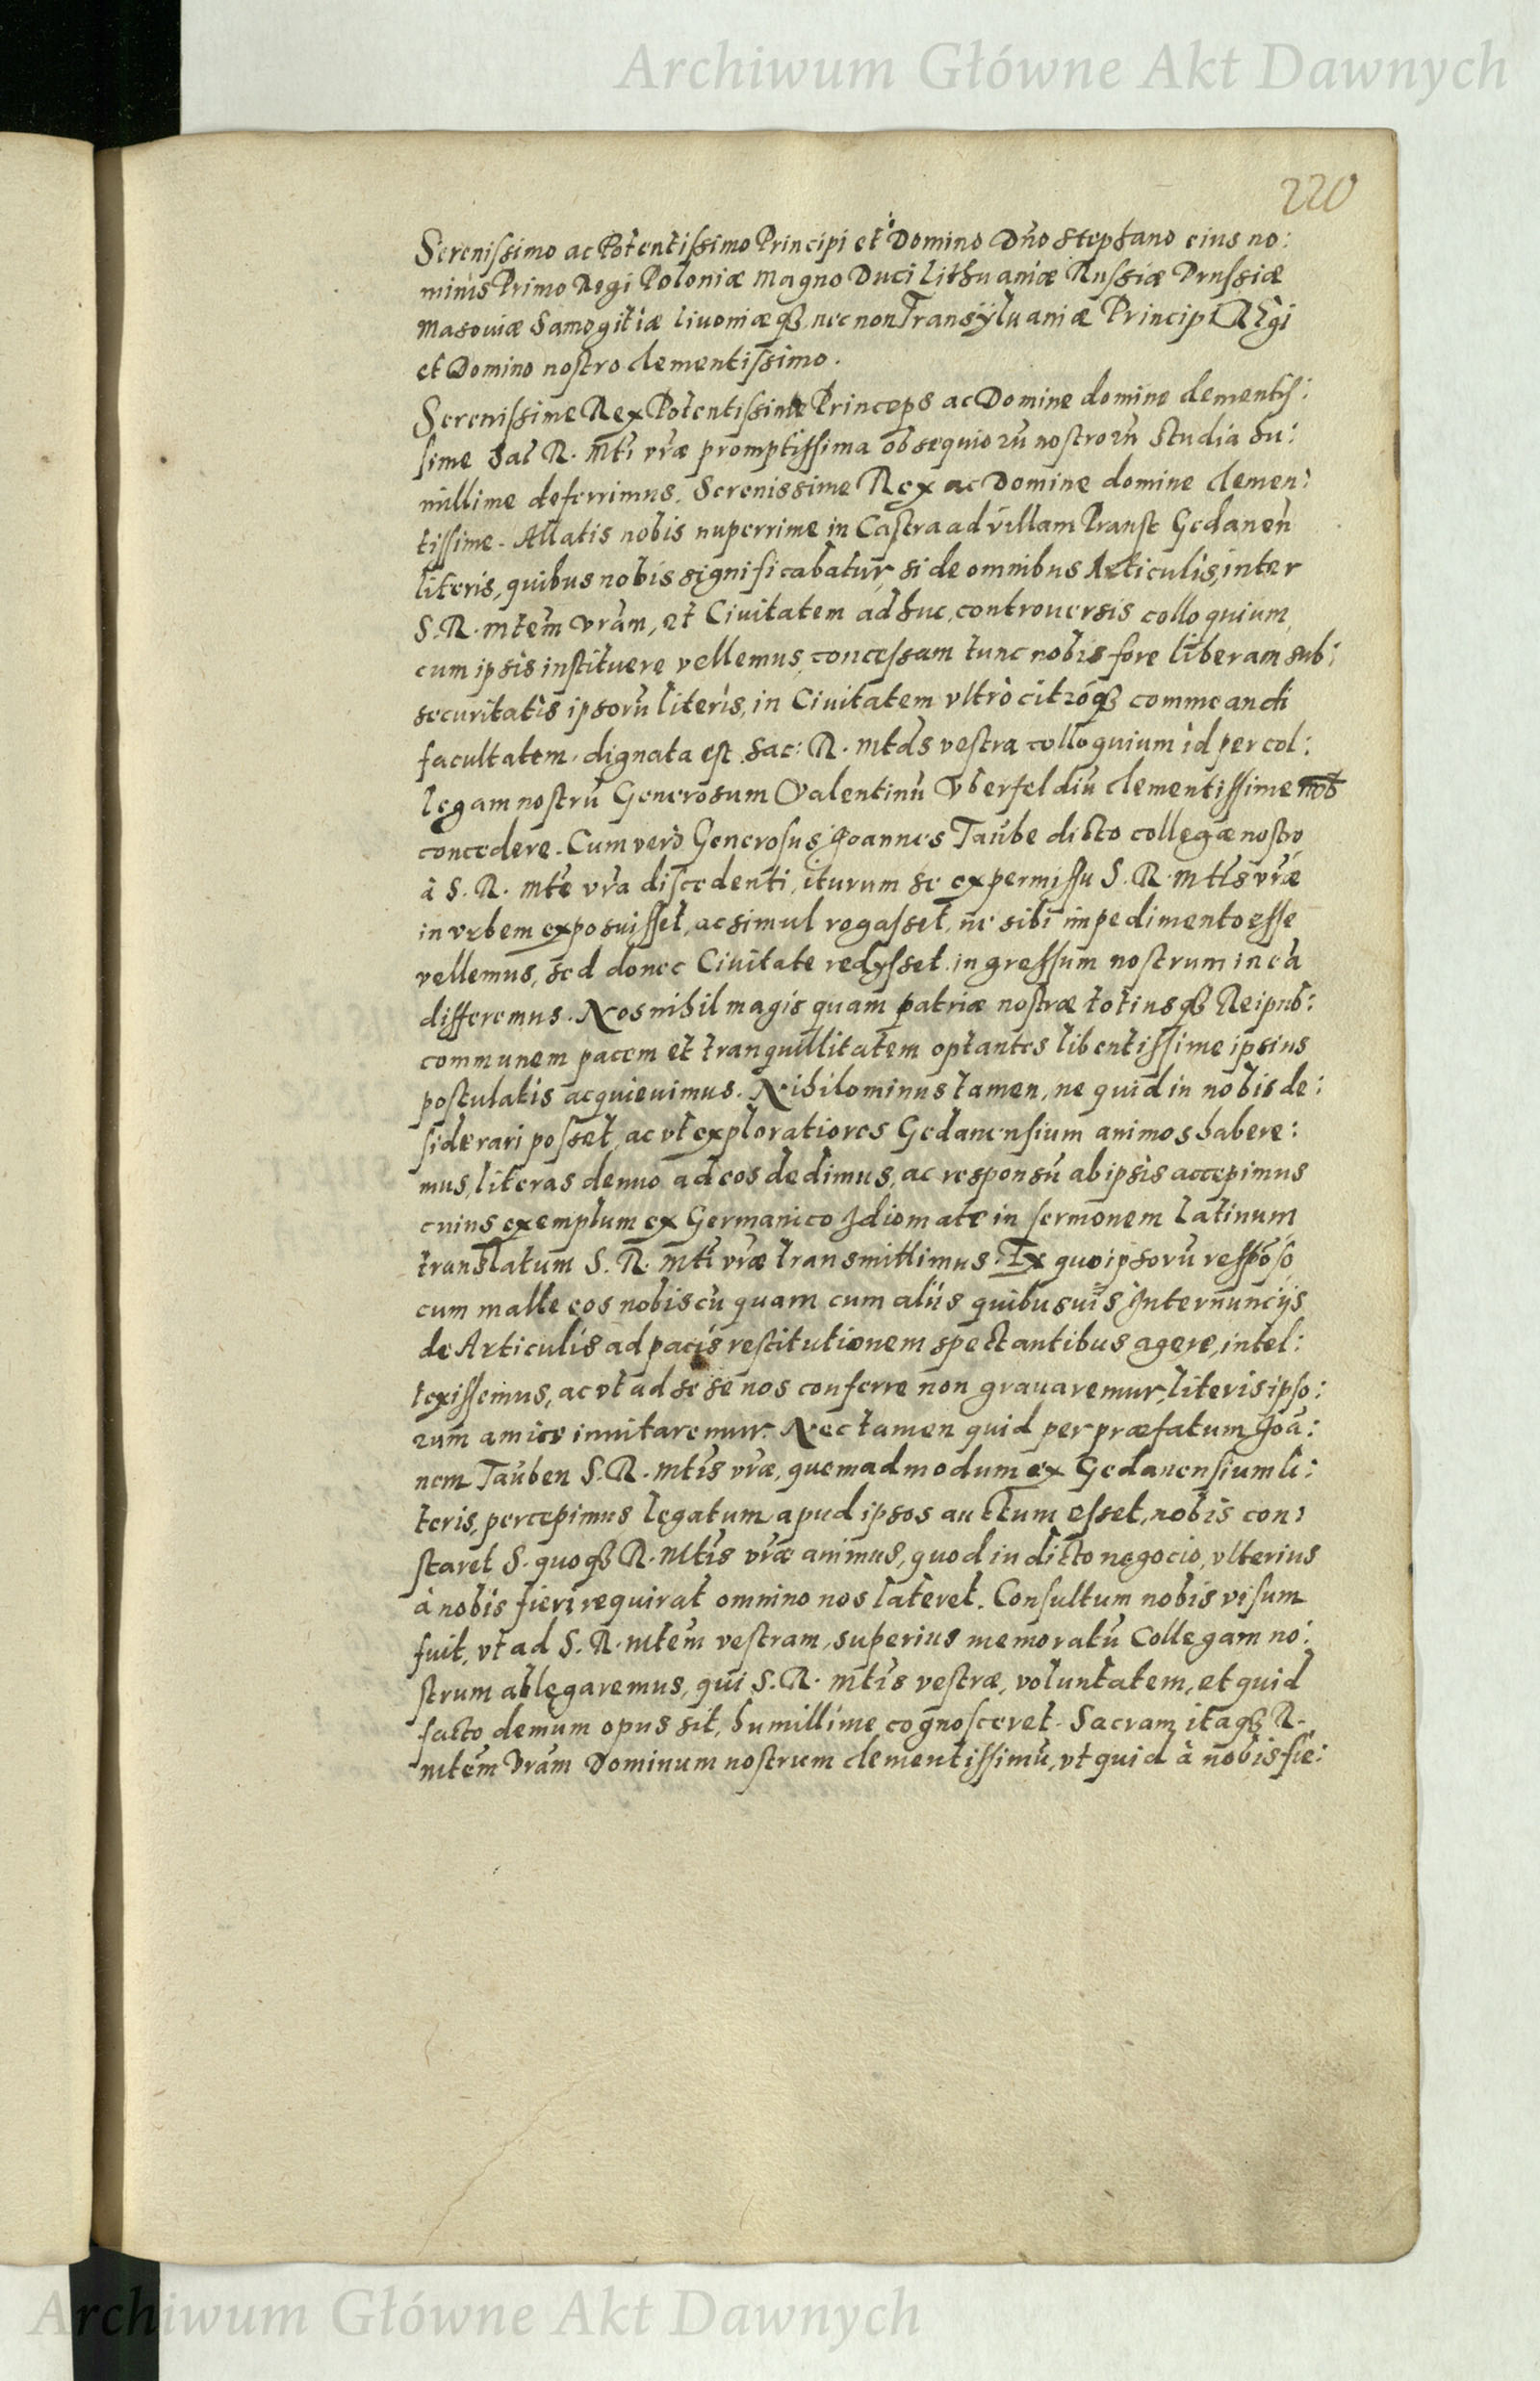 Archiwum Główne Akt Dawnych
220
Serenissimo ac Potentissimo Principi et Domino Dño Stephano eius no:
minis Primo Regi Poloniæ Magno Duci Lithuaniæ Russiæ Prussiæ
Masoviæ Samogitiæ Livoniæqȝ nec non Transÿlvaniæ Principi Regi
et Domino nostro clementissimo.
Serenissime Rex Potentissime Princeps ac Domine domine clementis:
sime Sac R. Mti vræ promptissima obsequiorū nostrorū Studia hu:
millime deferrimus. Serenissime Rex ac Domine domine clemen:
tissime. Allatis nobis nuperrime in Castra ad villam Pranst Gedaneñ
literis, quibus nobis significabatur, si de omnibus Articulis, inter
S. R. mtem vram, et Civitatem adhuc, controversis colloquium,
cum ipsis instituere vellemus, concessam tunc nobis fore liberam sub:
securitatis ipsorū literis, in Civitatem vltrò citròqȝ commeandi
facultatem, dignata est Sac: R. mtds vestra colloquium id per col:
legam nostrū Generosum Valentinū Vberfeldiū clementissime nob
concedere. Cum verò Generosus Joannes Taube dicto collegæ nostro
à S. R. Mte vra discedenti, iturum se ex permissu S. R. Mtis vræ
in vrbem exposuisset, ac simul rogasset, ne sibi impedimento esse
vellemus, sed donec Civitate redysset ingressum nostrum in eà
differemus. Nos nihil magis quam patriæ nostræ totiusqȝ Reipub:
communem pacem et tranquillitatem optantes libentissime ipsius
postulatis acquievimus. Nihilominus tamen, ne quid in nobis de:
siderari posset, ac vt exploratiores Gedanensium animos habere:
mus, literas denuo ad eos dedimus, ac responsū ab ipsis accepimus
cuius exemplum ex Germanico Idiomate in sermonem latinum
translatum S. R. Mti vræ transmittimus. Ex quo ipsorū respōso
cum malle eos nobiscū quam cum aliis quibusuis Internuncijs
de Articulis ad pacis restitutionem spectantibus agere, intel:
lexissemus, ac vt ad se se nos conferre non gravaremur, literis ipso:
rum amice invitaremur. Nec tamen quid per præfatum Joā:
nem Tauben S. R. Mtis vræ, quemadmodum ex Gedanensium li:
teris, percepimus legatum apud ipsos auctum esset, nobis con:
staret S. quoqȝ R. Mtis vræ animus, quod in dicto negocio, vlterius
à nobis fieri requirat omnino nos lateret. Consultum nobis visum
fuit, vt ad S. R. mtem vestram, superius memoratū Collegam no:
strum ablegaremus, qui S. R. Mtis vestræ, voluntatem, et quid
facto demum opus sit, humillime cognosceret. Sacram itaqȝ R.
mtem vram Dominum nostrum clementissimū, vt quid à nobis fie:
Archiwum Główne Akt Dawnych